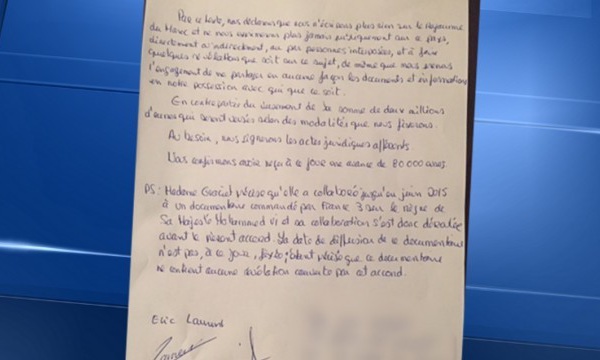 Par ce texte, nous déclarons que nous n'écrirons plus rien sur le Royaume
du Maroc et ne nous exprimerons plus jamais publiquement sur ce pays,
directement ou indirectement, ou par personnes interposées, et à faire
quelque révélation que soit sur ce sujet, de même que nous prenons
l'engagement de ne partager en aucune façon les documents et informations
en notre possession avec qui que ce soit.
En contrepartie du versement de la somme de deux millions
d'euros qui seront versés selon des modalités que nous fixerons.
Au besoin, nous signerons les actes juridiques afférents.
Nous confirmons avoir reçu à ce jour une avance de 80 000 euros.
PS: Madame Graciet précise qu'elle a collaboré jusqu'en juin 2015
à un documentaire commandé par France 3 sur le règne de
Sa Majesté Mohammed VI et sa collaboration s'est donc déroulée
avant le présent accord. La date de diffusion de ce documentaire
n'est pas, à ce jour, fixée; étant précisé que ce documentaire
ne contient aucune révélation couverte par cet accord.
Eric Laurent